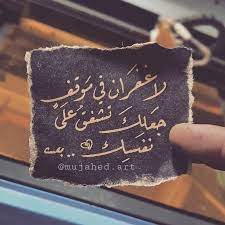 لا غفران في موقف
جعلك تشفق على
نفسك ..
@mujahed.art